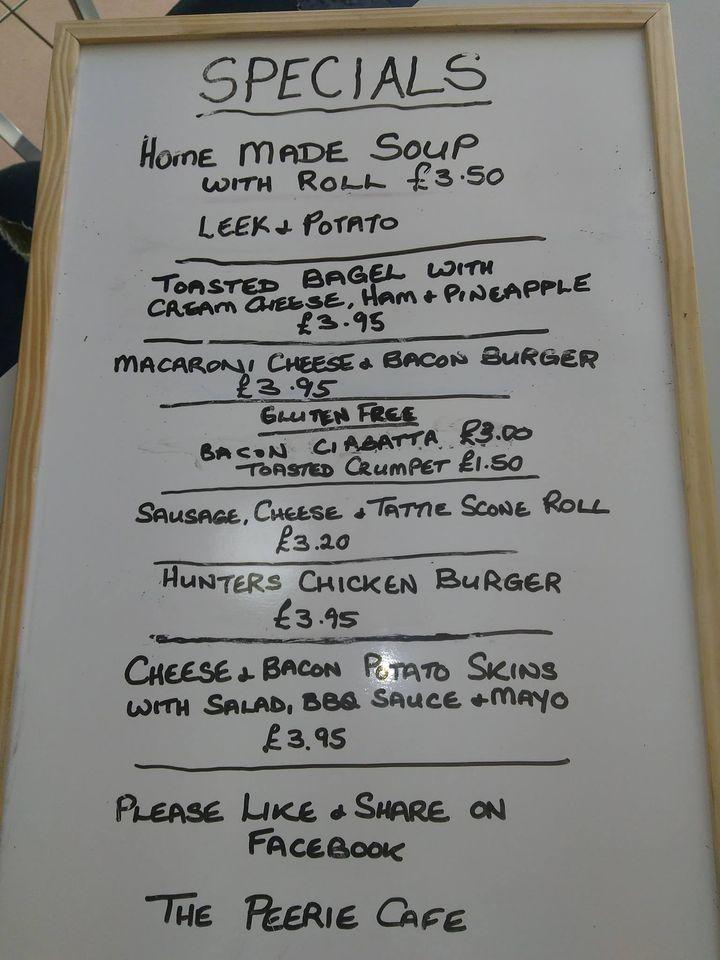 SPECIALS
Home MADE SOUP
WITH ROLL £3.50
LEEK & POTATO
TOASTED BAGEL WITH
CREAM CHEESE, HAM & PINEAPPLE
£3.95
MACARONI CHEESE & BACON BURGER
£3.95
GLUTEN FREE
BACON CIABATTA £3.00
TOASTED CRUMPET £1.50
SAUSAGE, CHEESE & TATTIE SCONE ROLL
£3.20
HUNTERS CHICKEN BURGER
£3.95
CHEESE & BACON POTATO SKINS
WITH SALAD, BBQ SAUCE & MAYO
£3.95
PLEASE LIKE & SHARE ON
FACEBOOK
THE PEERIE CAFE